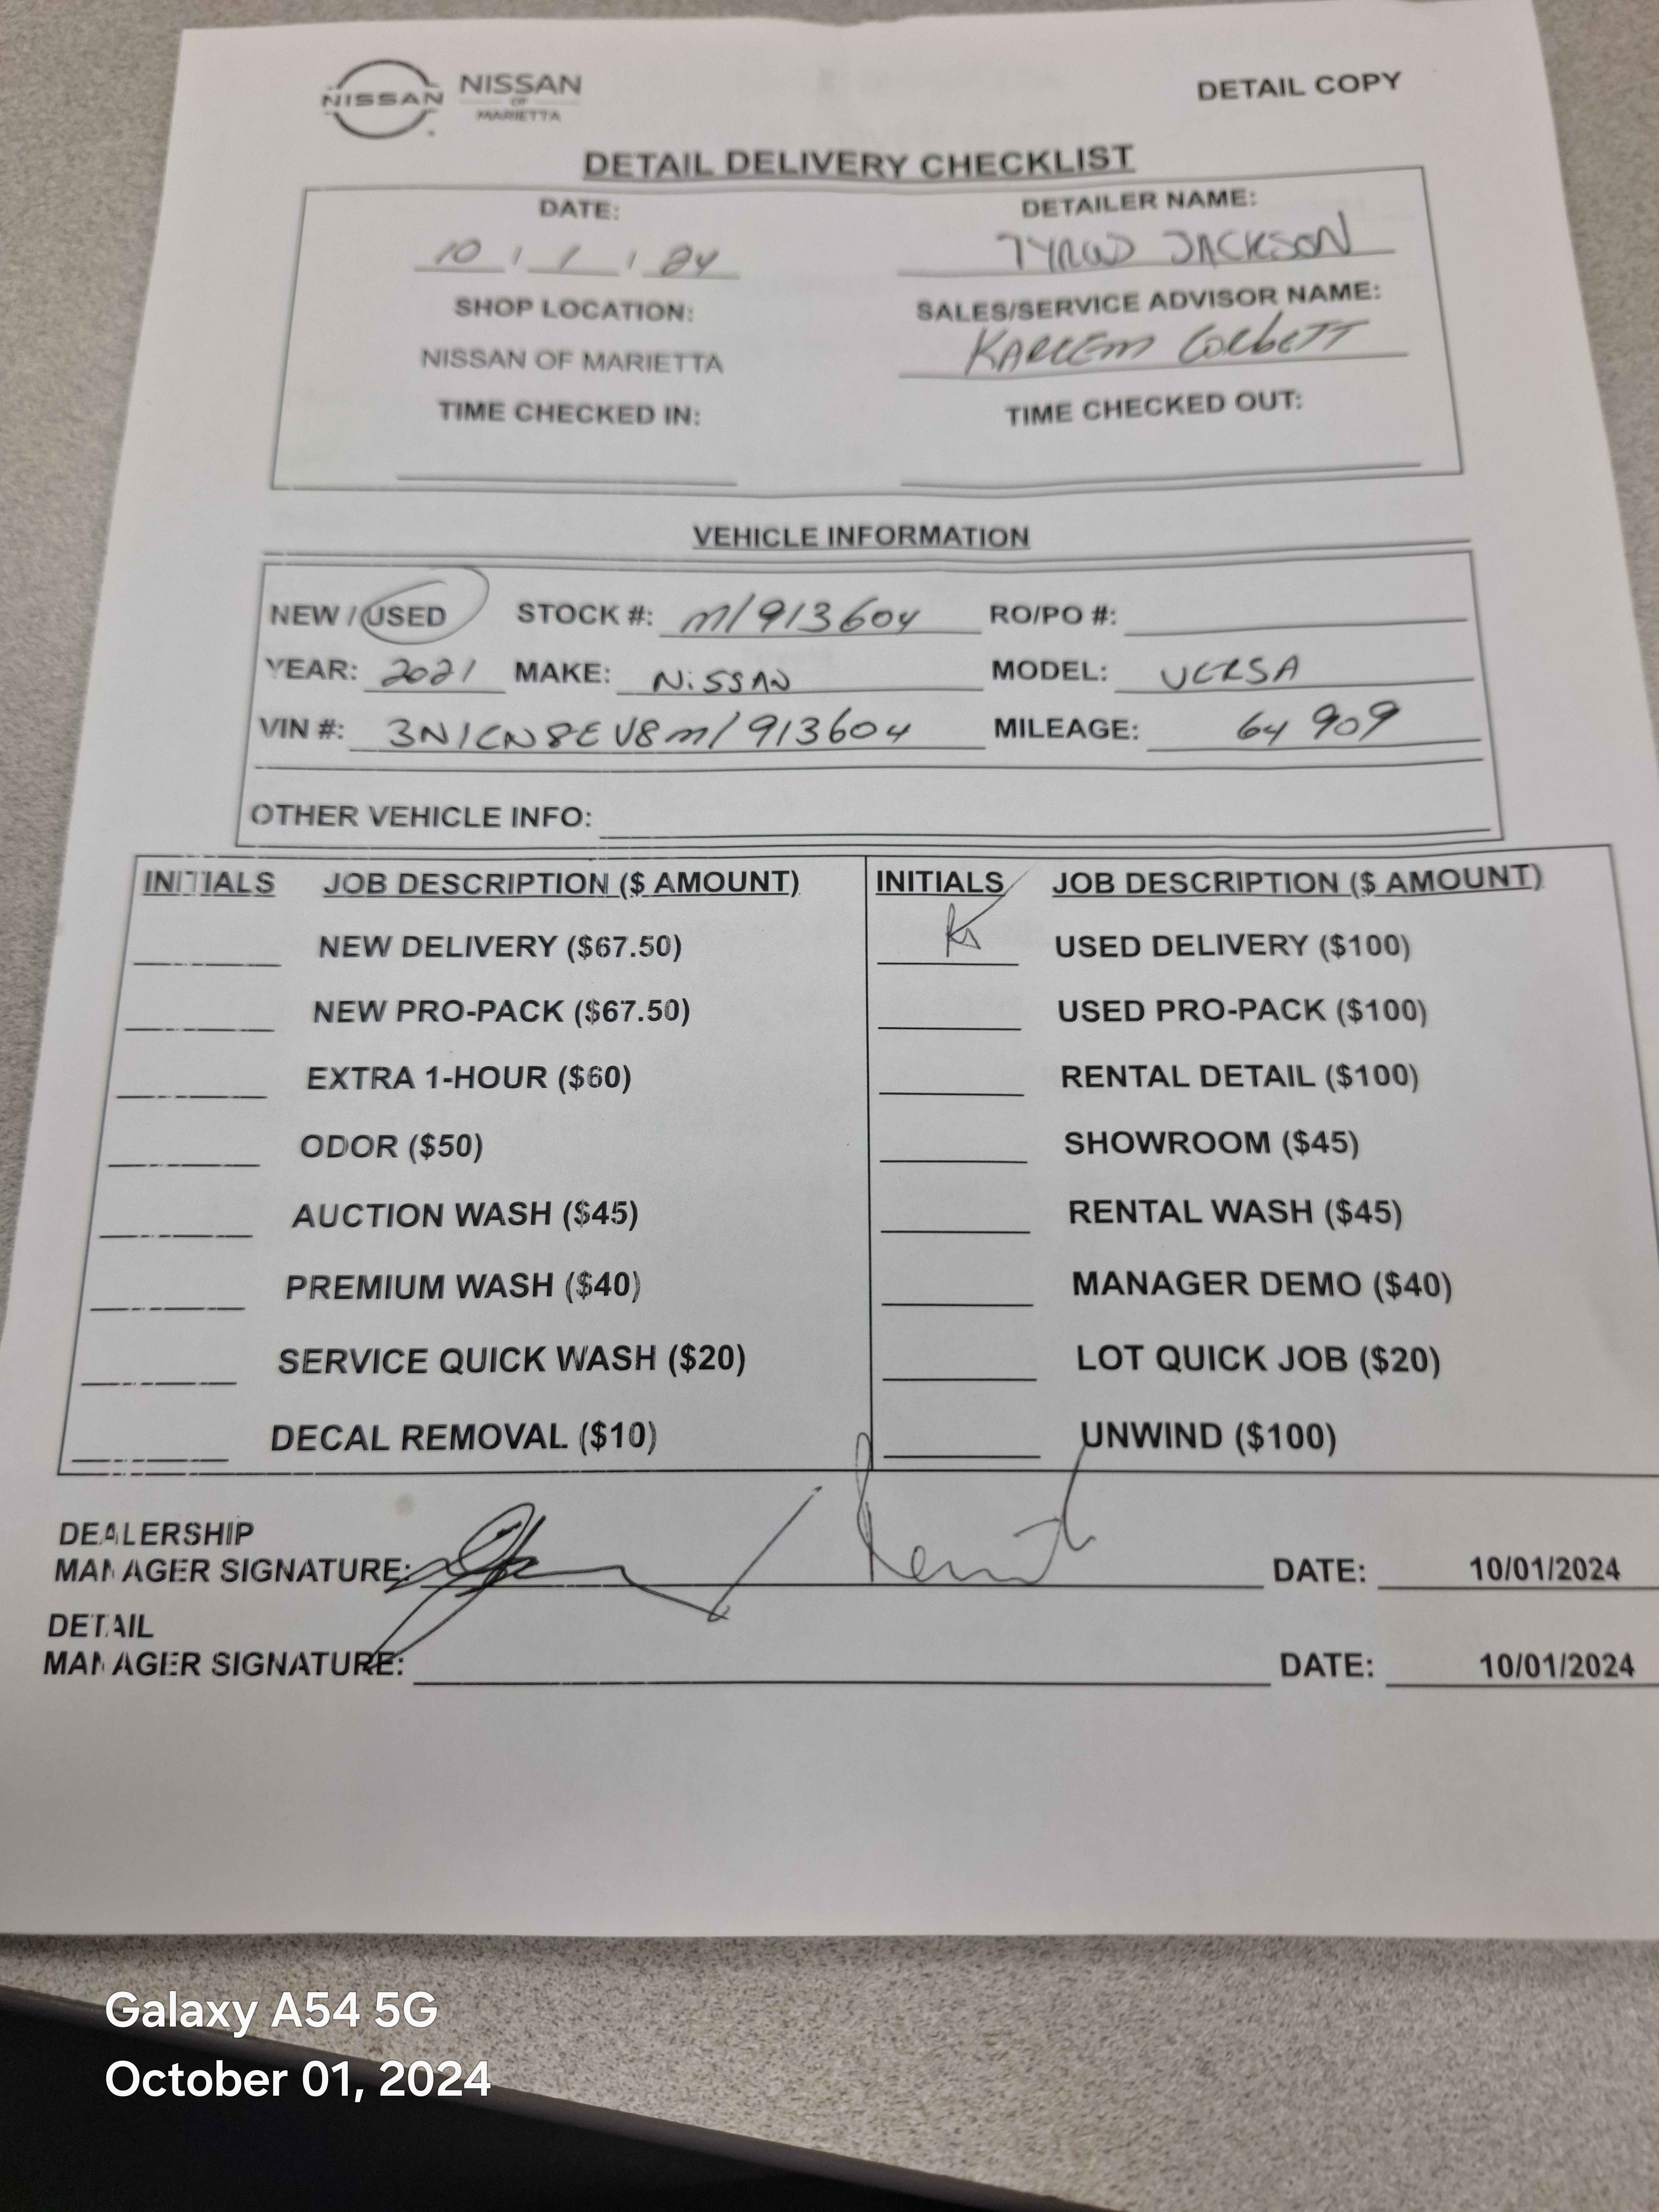 NISSAN NISSAN
OF
MARIETTA
DETAIL COPY
DETAIL DELIVERY CHECKLIST
DATE: DETAILER NAME:
10 / 1 / 24 JACKSON
SHOP LOCATION: SALES/SERVICE ADVISOR NAME:
NISSAN OF MARIETTA KAREEM CORBETT
TIME CHECKED IN: TIME CHECKED OUT:
VEHICLE INFORMATION
NEW / USED STOCK #: M1913604 RO/PO #:
YEAR: 2021 MAKE: NISSAN MODEL: VERSA
VIN #: 3N1CN8EV8M1913604 MILEAGE: 64 909
OTHER VEHICLE INFO:
INITIALS JOB DESCRIPTION ($ AMOUNT) INITIALS JOB DESCRIPTION ($ AMOUNT)
NEW DELIVERY ($67.50) USED DELIVERY ($100)
NEW PRO-PACK ($67.50) USED PRO-PACK ($100)
EXTRA 1-HOUR ($60) RENTAL DETAIL ($100)
ODOR ($50) SHOWROOM ($45)
AUCTION WASH ($45) RENTAL WASH ($45)
PREMIUM WASH ($40) MANAGER DEMO ($40)
SERVICE QUICK WASH ($20) LOT QUICK JOB ($20)
DECAL REMOVAL ($10) UNWIND ($100)
DEALERSHIP
MANAGER SIGNATURE: DATE: 10/01/2024
DETAIL
MANAGER SIGNATURE: DATE: 10/01/2024
Galaxy A54 5G
October 01, 2024